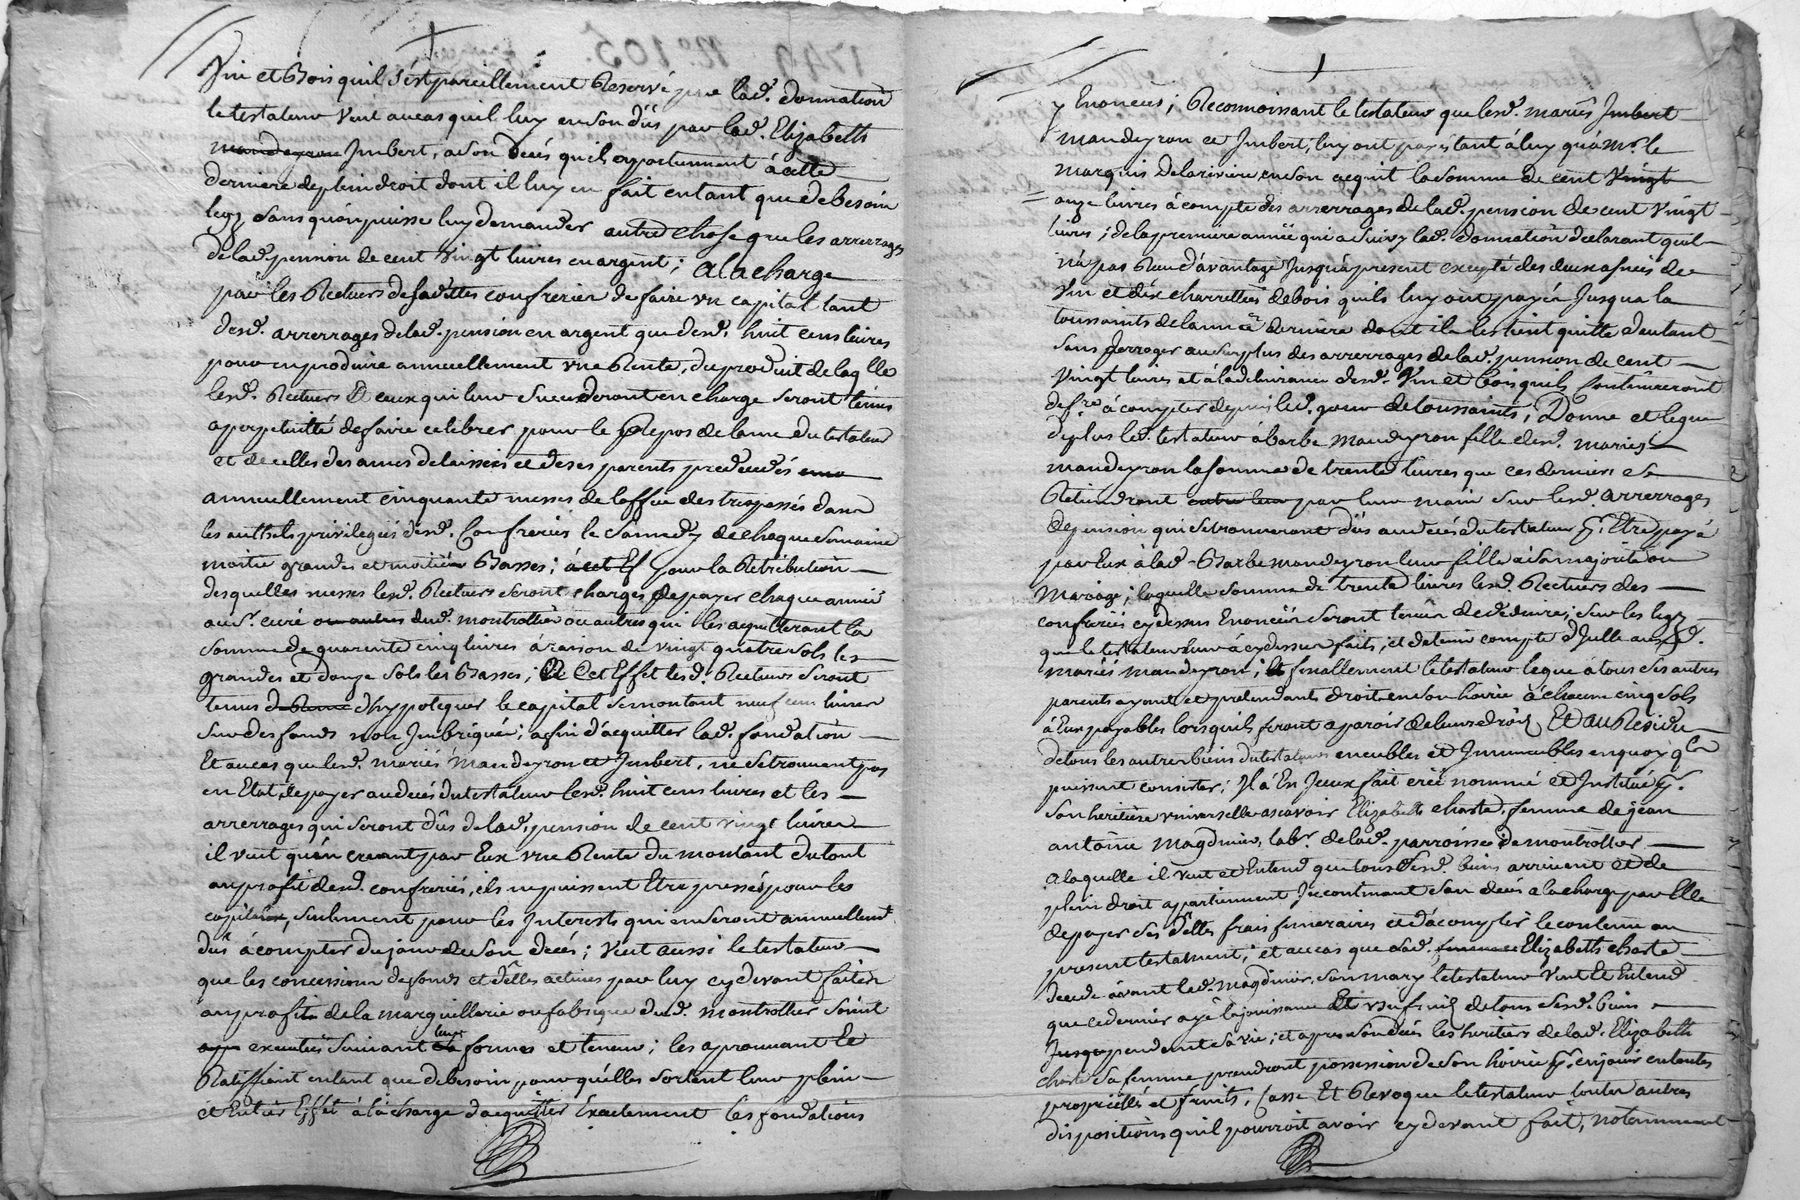 Vin et Bois quil s'est pareillement Reservé par lad. donnation
le testateur veut au cas quil luy en soit dûs par lad. Elizabeth
mandeyron Imbert, a son decés quils appartiennent à cette
derniere de plein droit dont il luy en fait entant que de besoin
legz sans qu'on puisse luy demander autre chose que les arrerrages
de lad. pension de cent vingt livres en argent; a la charge
par les Recteurs desdittes confreries de faire un capital tant
desd. arrerrages de lad. pension en argent que desd. huit cens livres
pour en produire annuellement une Rente, du produit de laqlle
lesd. Recteurs et ceux qui leur succederont en charge seront tenus
a perpetuitté de faire celebrer pour le Repos de lame du testateur
et de celles des ames delaissées et de ses parents predecedés
annuellement cinquante messes de loffice des trepassés dans
les authels privilegiés desd. Confreries le samedy de chaque semaine
moitié grandes et moitié Basses; à cet Ef pour la Retribution
desquelles messes lesd. Recteurs seront chargés de payer chaque année
au sr. curé ou autres dud. montrottier ou autres qui les acquitteront la
somme de quarente cinq livres à raison de vingt quatre sols les
grandes et douze sols les Basses; A Cet Effet lesd. Recteurs seront
tenus d'hypotequer le capital se montant neuf cens livres
sur des fonds non Imbriqués; afin d'acquitter lad. fondation
Et au cas que lesd. mariés Mandeyron et Imbert, ne se trouvent pas
en Etat de payer au decés du testateur lesd. huit cens livres et les
arrerrages qui seront dûs de lad. pension de cent vingt livres
il veut qu'en creant par Eux une Rente du montant du tout
au profit desd. confreries, ils ne puissent Etre pressés pour les
capitaux, seulement pour les Interests qui en seront annuellemt
dûs à compter du jour de son decés; veut aussi le testateur
que les concessions de fonds et dettes actives par luy cy devant faites
au profit de la marguillerie ou fabrique dud. montrottier soient
executées suivant leurs formes et teneur; les aprouvant et
Ratiffiant entant que de besoin pour qu'elles sortent leur plein
et Entier Effet à la charge d'acquitter Exactement les fondations
y Enoncées; Reconnoissant le testateur que lesd. mariés Imbert
mandeyron et Imbert, luy ont payé tant à luy qu'à Mr. le
marquis de la riviere en son acquit la somme de cent vingt
onze livres à compte des arrerrages de lad. pension de cent vingt
livres; de la premiere année qui a suivy lad. donnation declarant quil
n'a pas Reçu d'avantage jusqu'à present excepté des deux asnées de
vin et dix charrettées de bois quils luy ont payés jusqua la
toussaints de lannée derniere dont il les tient quitte d'autant
sans derroger au surplus des arrerrages de lad. pension de cent
vingt livres et à la delivrance desd. Vin et Bois quils continueront
de fre à compter depuis led. jour de toussaints; Donne et legue
de plus led. testateur à barbe mandeyron fille desd. mariés
mandeyron la somme de trente livres que ces derniers
Retiendront outre leur par leur main sur lesd. arrerrages
de pension qui se trouveront dûs au decés du testateur pr. Etre payé
par Eux à lad. Barbe mandeyron leur fille à sa majorité ou
mariage; laquelle somme de trente livres lesd. Recteurs des
confreries cy dessus Enoncées seront tenus de deduire, sur les legz
que le testateur leur à cy dessus faits, et de tenir compte d'Icelle auxd.
mariés mandeyron; Et finallement le testateur legue à tous ses autres
parents ayant et pretendant droit en son hoirie à chacun cinq sols
à Eux payables lorsquils feront aparoir de leurs droits Et au Residu
de tous les autres biens du testateur meubles et Immeubles en quoy qls
puissent consister; Il a En Iceux fait créé nommé et Institué pr.
son heritiere universelle ascavoir Elizabeth charte, femme de jean
antoine magdinier, labr. de lad. parroisse de montrottier
a laquelle il veut et Entend que tous sesd. biens arrivent et de
plein droit appartiennent Incontinant son decés a la charge par Elle
de payer ses dettes frais funeraires et d'acomplir le contenu au
present testament; et au cas que lad. femme Elizabeth charte
decede avant led. magdinier, son mary le testateur veut Et Entend
que ce dernier aye la jouissance Et usufruit de tous sesd. biens
jusques pendent sa vie; et apres son decés les heritiers de lad. Elizabeth
charte sa femme prendront possession de son hoirie pr. en jouir en toutes
proprietés et fruits, Casse Et Revoque le testateur toutes autres
dispositions quil pourroit avoir cy devant fait, notamment